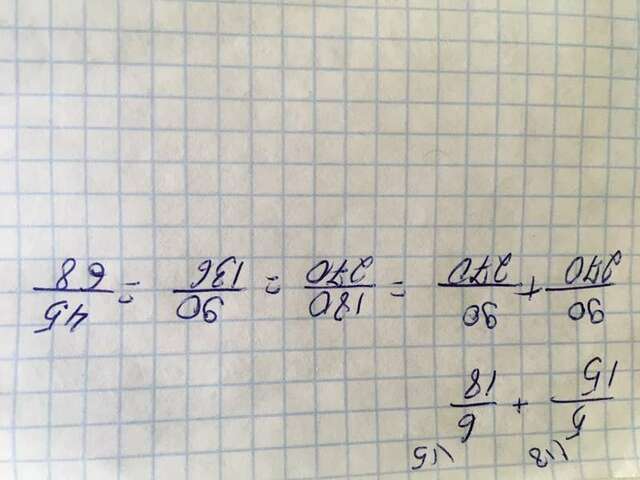 5\18/15 + 6\15/18
90/270 + 90/270 = 180/270 = 90/136 = 45/68